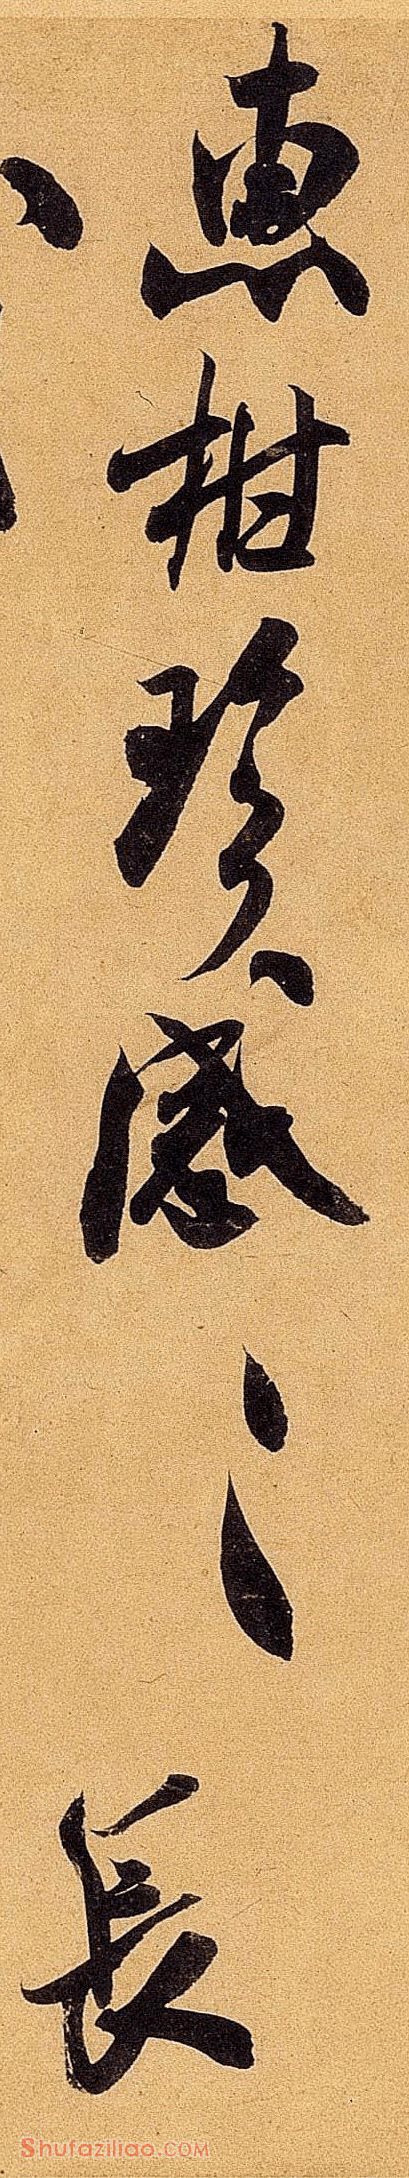 惠柑珍感〻長
Shufaziliao.COM